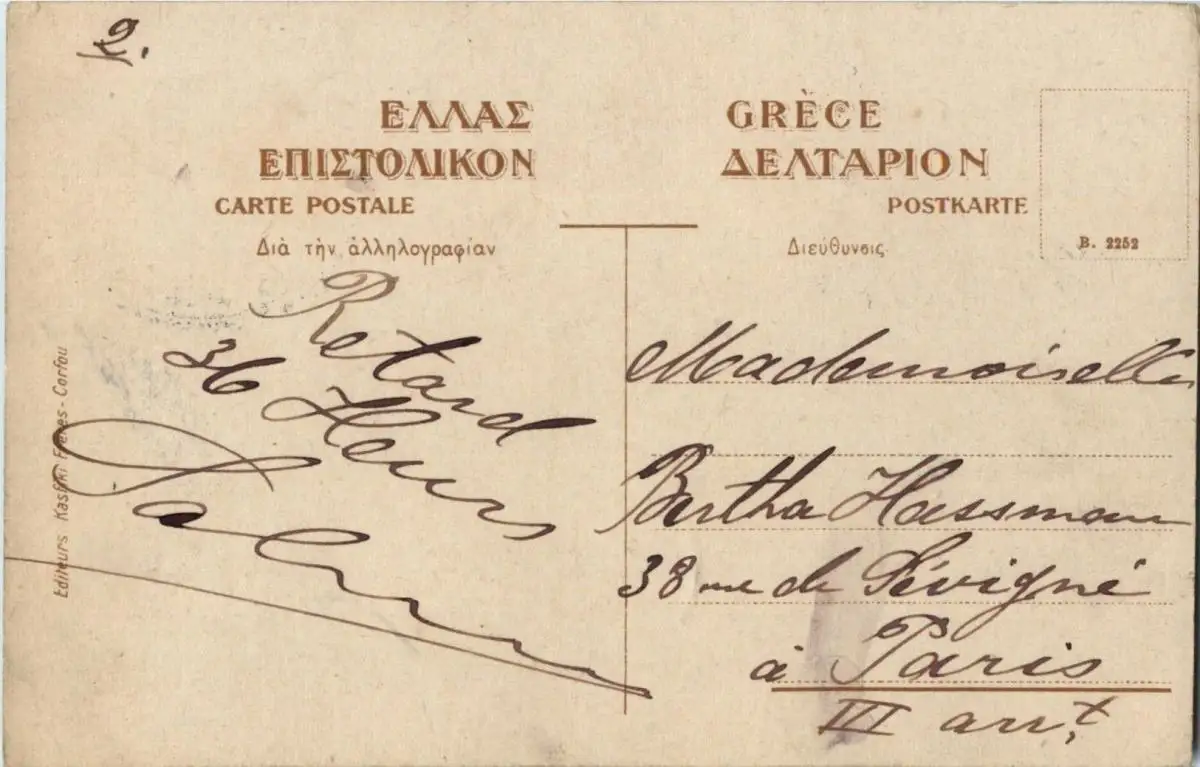 2.
ΕΛΛΑΣ
ΕΠΙΣΤΟΛΙΚΟΝ
CARTE POSTALE
Διὰ τὴν ἀλληλογραφίαν
GRÈCE
ΔΕΛΤΑΡΙΟΝ
POSTKARTE
Διεύθυνσις
B. 2252
Retard
36 Heures
Mademoiselle
Bertha Hassmann
38 rue de Sévigné
à Paris
III arrt.
Editeurs Kastiki Frères - Corfou